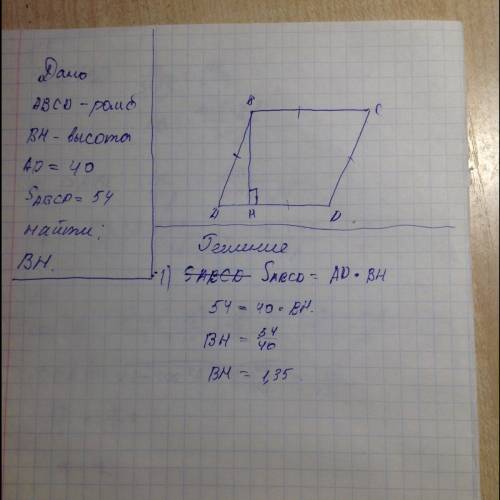 Дано
ABCD - ромб
BH - высота
AD = 40
SABCD = 54
Найти:
BH.
B C
D H D
Решение
1) SABCD SABCD = AD • BH
54 = 40 • BH.
BH = 54/40
BH = 1,35